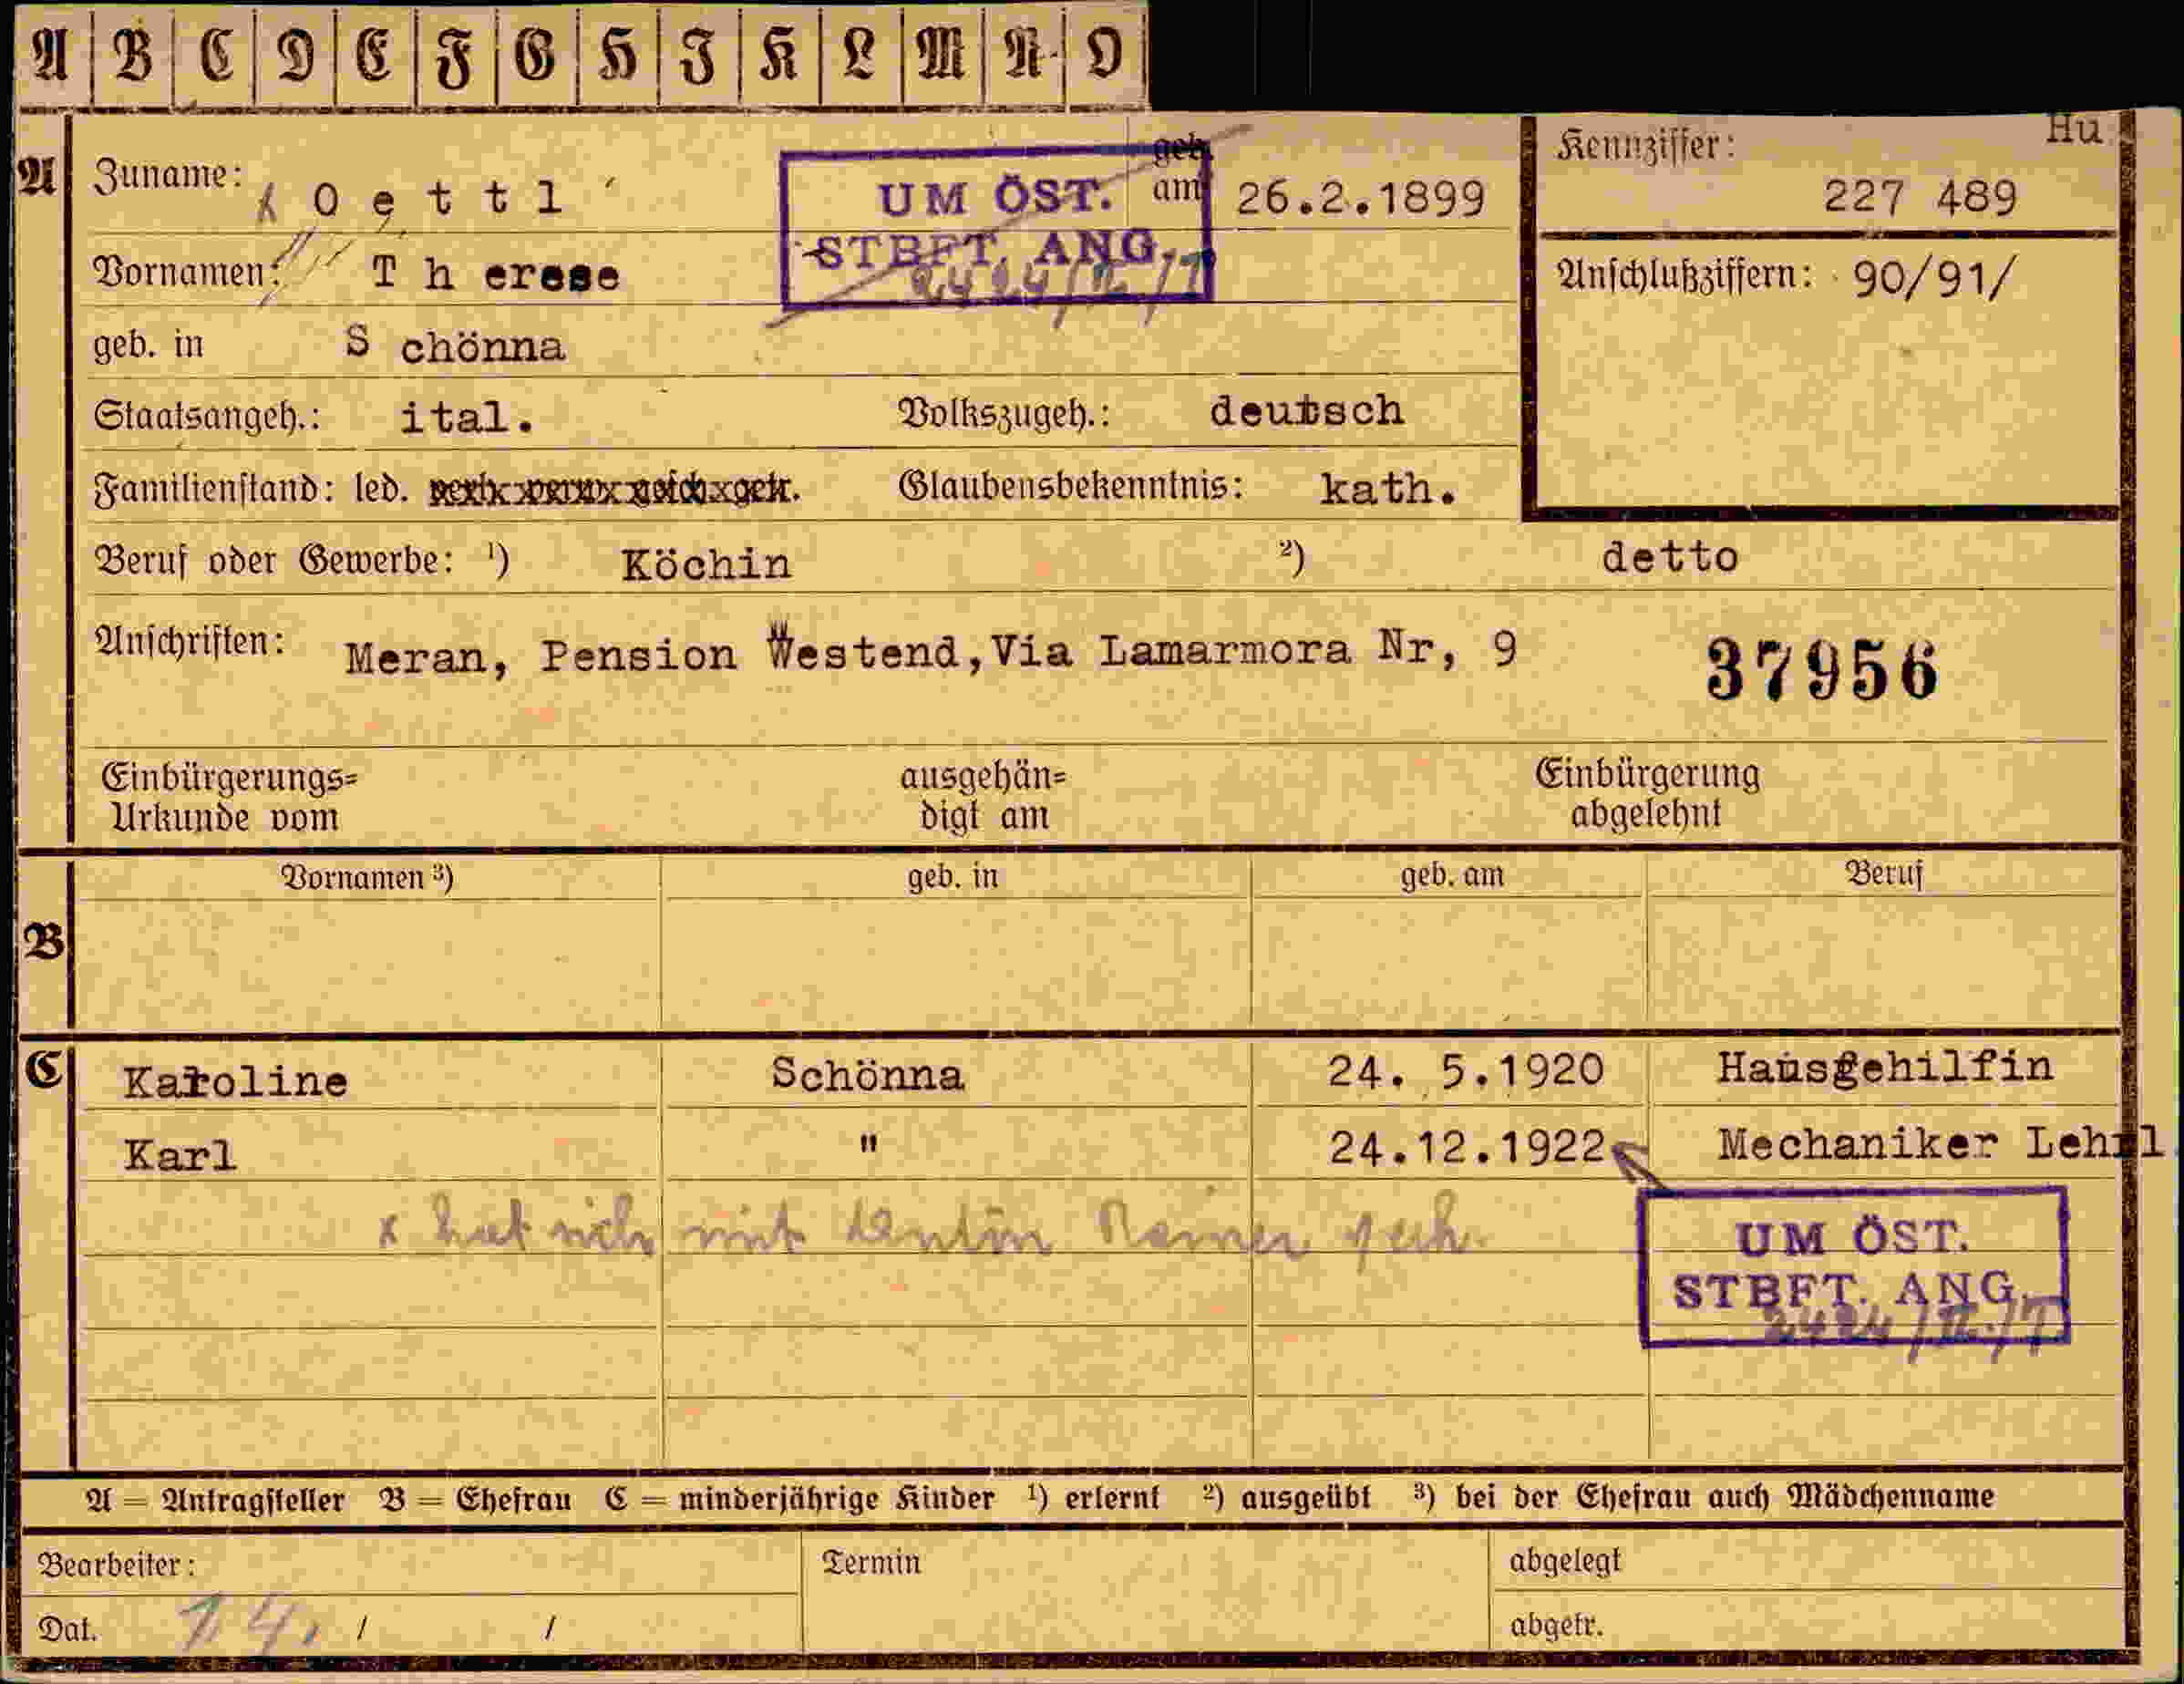 A B C D E F G H I K L M N O
Hu
A Zuname: x O e t t l geb. am 26.2.1899 Kennziffer: 227 489
UM ÖST.
STBFT. ANG.
Vornamen: T h erese Anschlußziffern: 90/91/
geb. in S chönna
Staatsangeh.: ital. Volkszugeh.: deutsch
Familienstand: led. verh. verw. gesch. getr. Glaubensbekenntnis: kath.
Beruf oder Gewerbe: ¹) Köchin ²) detto
Anschriften: Meran, Pension Westend,Via Lamarmora Nr, 9 37956
Einbürgerungs= ausgehän= Einbürgerung
Urkunde vom digt am abgelehnt
Vornamen ³) geb. in geb. am Beruf
B
C Karoline Schönna 24. 5.1920 Hausgehilfin
Karl " 24.12.1922 Mechaniker Lehrl
x hat sich mit
UM ÖST.
STBFT. ANG.
A = Antragsteller B = Ehefrau C = minderjährige Kinder ¹) erlernt ²) ausgeübt ³) bei der Ehefrau auch Mädchenname
Bearbeiter: Termin abgelegt
Dat. 14. / / abgetr.